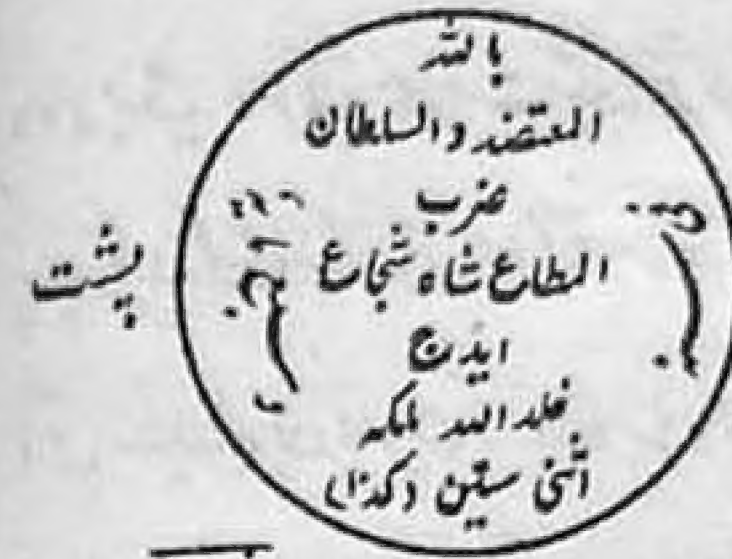 بالله
المعتضد والسلطان
ضرب
المطاع شاه شجاع
ایدج
خلد الله ملکه
اثنی ستین (کذا)
پشت